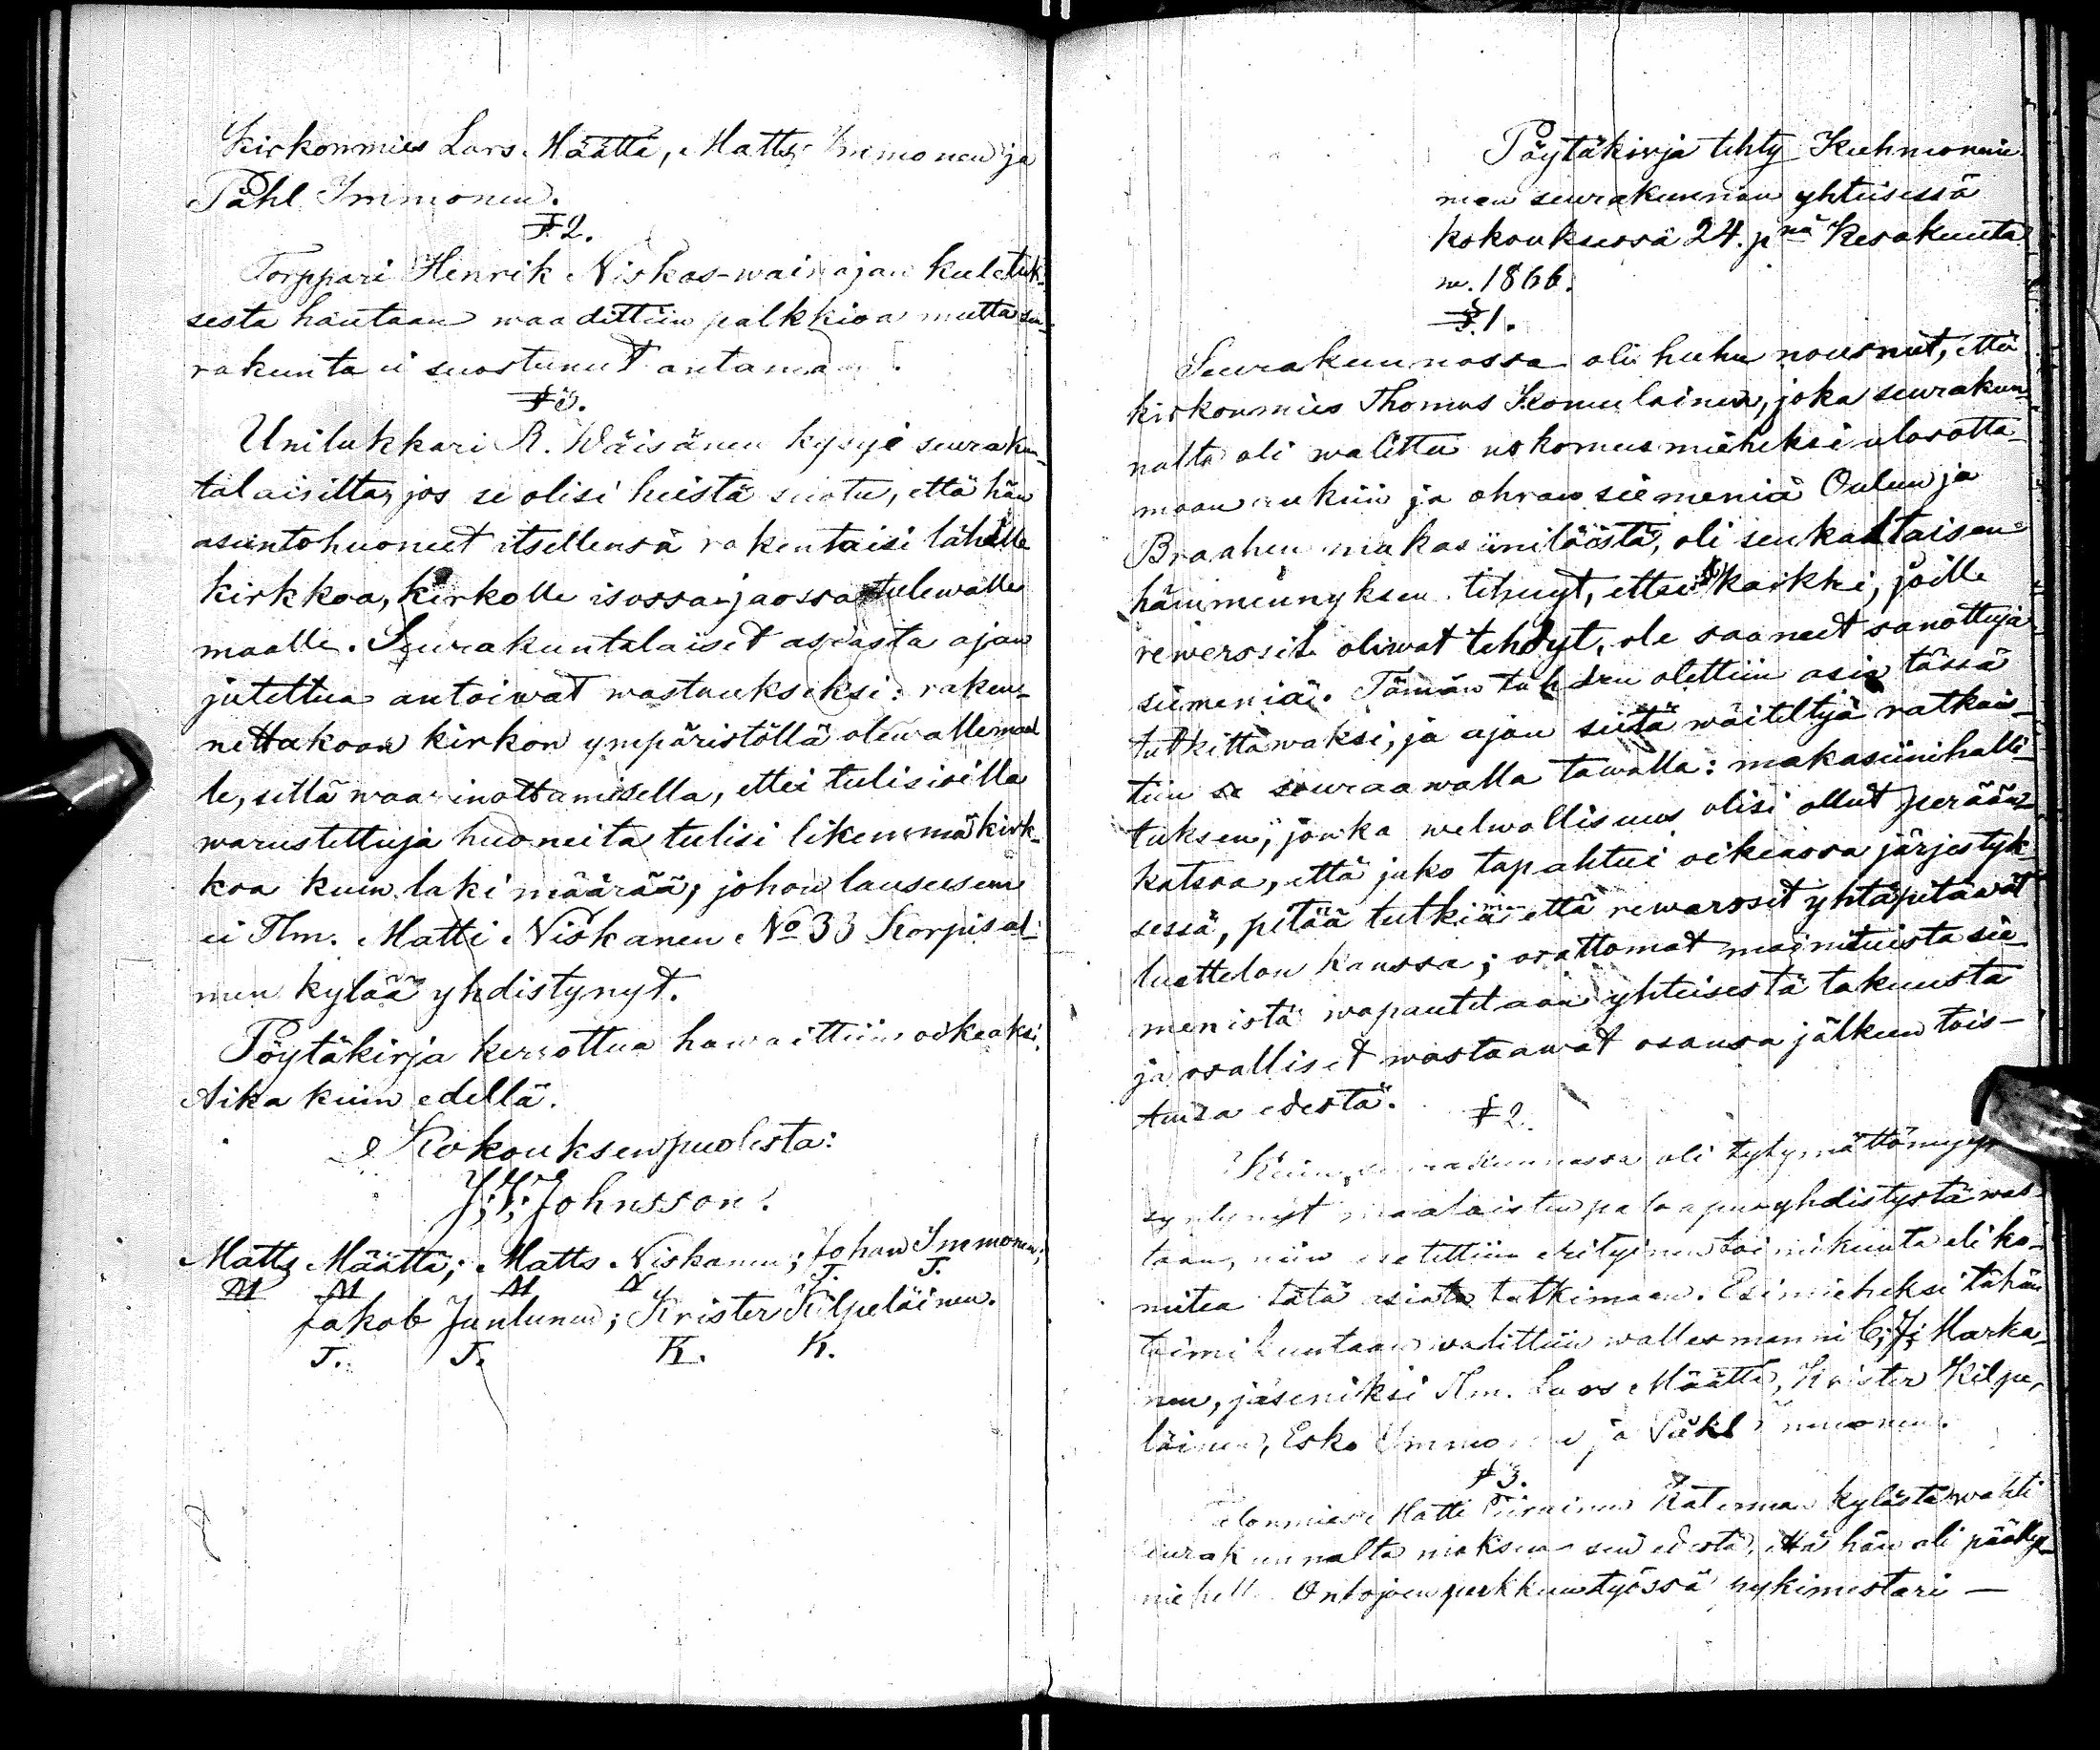 Kirkonmies Lars Määttä, Matts Immonen ja
Påhl Immonen.
§ 2.
Torppari Henrik Niskas-wainajan kuletuk-
sesta hautaan waadittiin palkkioa mutta seu-
rakunta ei suostunut antamaan.
§ 3.
Unilukkari R. Wäisänen kysyi seurakun-
talaisilta, jos se olisi heistä suotu, että hän
asuntohuoneet itsellensä rakentaisi lähelle
kirkkoa, kirkolle isossa-jaossa tulewalle
maalle. Seurakuntalaiset asiasta ajan
jutettua antoiwat wastaukseksi: raken-
nettakoon kirkon ympäristöllä olewalle maal
le, sillä waarinottamisella, ettei tulisioilla
warustettuja huoneita tulisi likemmä kirk-
koa kuin laki määrää; johon lauseesen
ei Tlm. Matti Niskanen No 33 Korpisal-
men kylää yhdistynyt.
Pöytäkirja kerrottua hawaittiin oikeaksi.
Aika kuin edellä.
Kokouksen puolesta:
J; F; Johnsson.
Matts Määttä; Matts Niskanen; Johan Immonen;
M M M N J. J.
Jakob Juntunen; Krister Kilpeläinen.
J. J. K. K.
Pöytäkirja tehty Kuhmonnie-
men seurakunnan yhteisessä
kokouksessa 24. pnä Kesäkuuta
w. 1866.
§ 1.
Seurakunnassa oli huhu noussut, että
kirkonmies Thomas Komulainen, joka seurakun-
nalta oli walittu uskomusmieheksi ulosotta-
maan rukiin ja ohran siemeniä Oulun ja
Braahen makasiinilöistä, oli senkaltaisen
hämmennyksen tehnyt, ettei kaikki, joille
rewerssit oliwat tehdyt, ole saaneet sanottuja
siemeniä. Tämän tähden otettiin asia tässä
tutkittawaksi, ja ajan siitä wäiteltyä ratkais-
tiin se seuraawalla tawalla: makasiinihalli-
tuksen, jonka welwollisuus olisi ollut perään-
katsoa, että jako tapahtui oikeassa järjestyk-
sessä, pitää tutkia että rewerssit yhtäpitäwät
luettelon kanssa; osattomat mainituista sie-
menistä wapautetaan yhteisestä takuusta
ja osalliset wastaawat osansa jälkeen tois-
tensa edestä.
§ 2.
Kuin seurakunnassa oli tytymättömyys
syntynyt maalaisten paloapuyhdistystä was-
taan, niin asetettiin erityinen toimikunta eli ko-
mitea tätä asiata tutkimaan. Esimieheksi tähän
toimikuntaan walittiin wallesmanni C; J; Marka-
nen, jäseniksi Tlm. Lars Määttä, Krister Kilpe-
läinen, Esko Immonen ja Påhl Immonen.
§ 3.
Talonmies Matti Piirainen Katerman kylästä wahti
seurakunnalta maksua sen edestä, että hän oli päälly-
miehellä Ontojoen perkkuutyössä nykimestari —